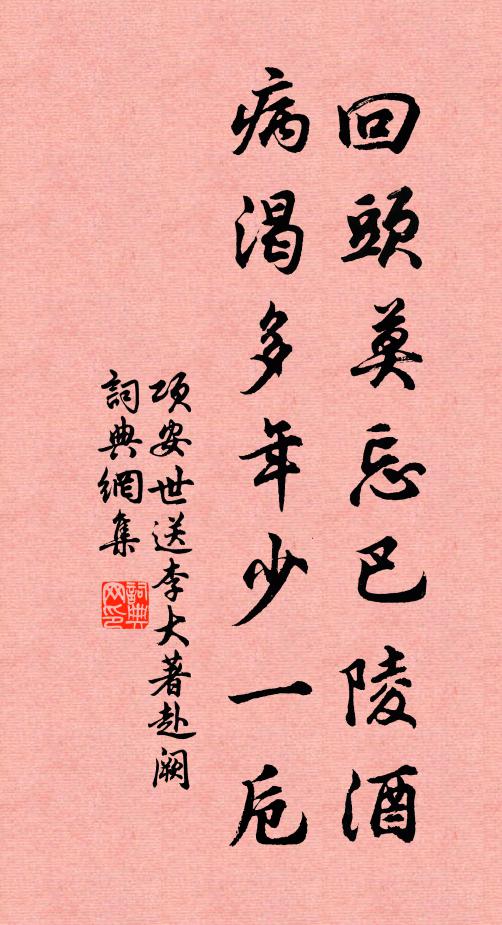 回頭莫忘巴陵酒
病渴多年少一卮
项安世送李大著赴阙
詞典網集
詞典网印